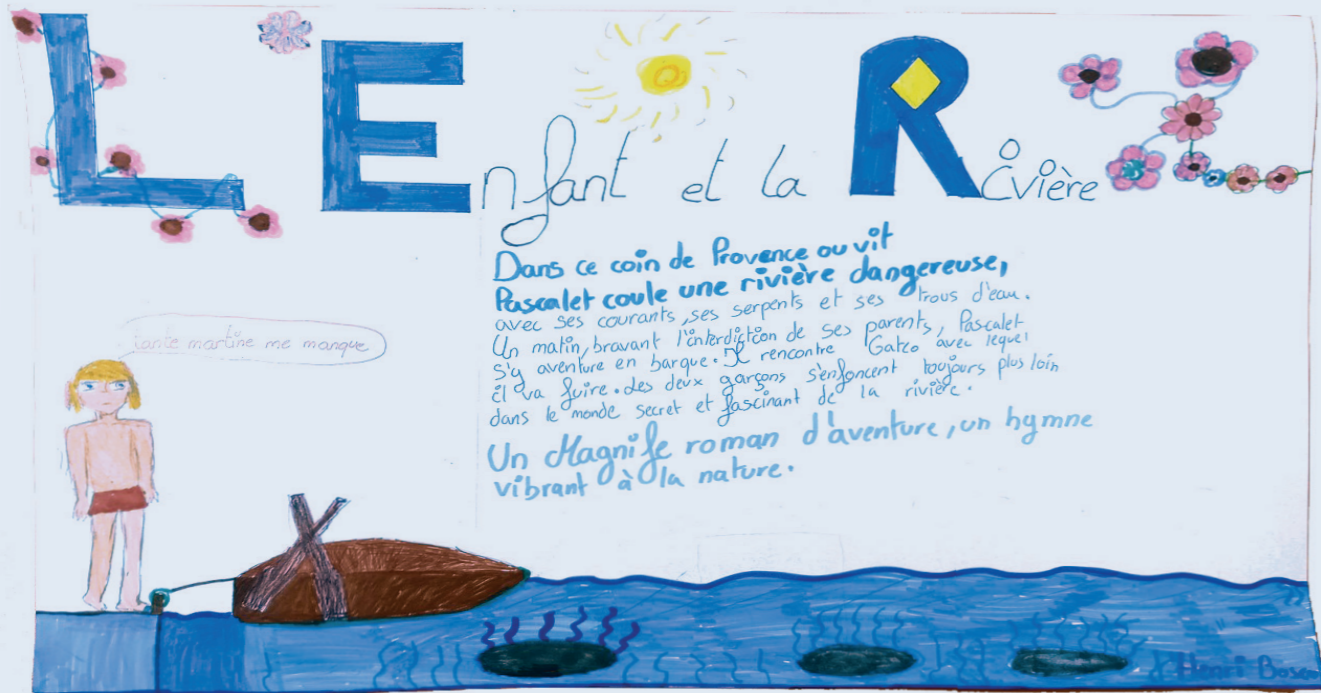 L'Enfant et la Rivière
Dans ce coin de Provence ou vit
Pascalet coule une rivière dangereuse,
avec ses courants, ses serpents et ses trous d'eau.
Un matin, bravant l'interdiction de ses parents, Pascalet
s'y aventure en barque. Il rencontre Gatzo avec lequel
il va fuire. Les deux garçons s'enfoncent toujours plus loin
dans le monde secret et fascinant de la rivière.
Un Magnife roman d'aventure, un hymne
vibrant à la nature.
tante martine me manque
Henri Bosco